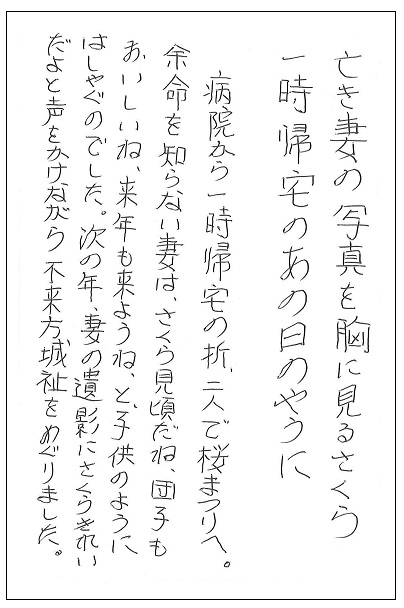 亡き妻の写真を胸に見るさくら
一時帰宅のあの日のやうに
病院から一時帰宅の折、二人で桜まつりへ。
余命を知らない妻は、さくら見頃だね、団子も
おいしいね、来年も来ようね、と、子供のように
はしゃぐのでした。次の年、妻の遺影にさくらきれい
だよと声をかけながら不来方城祉をめぐりました。